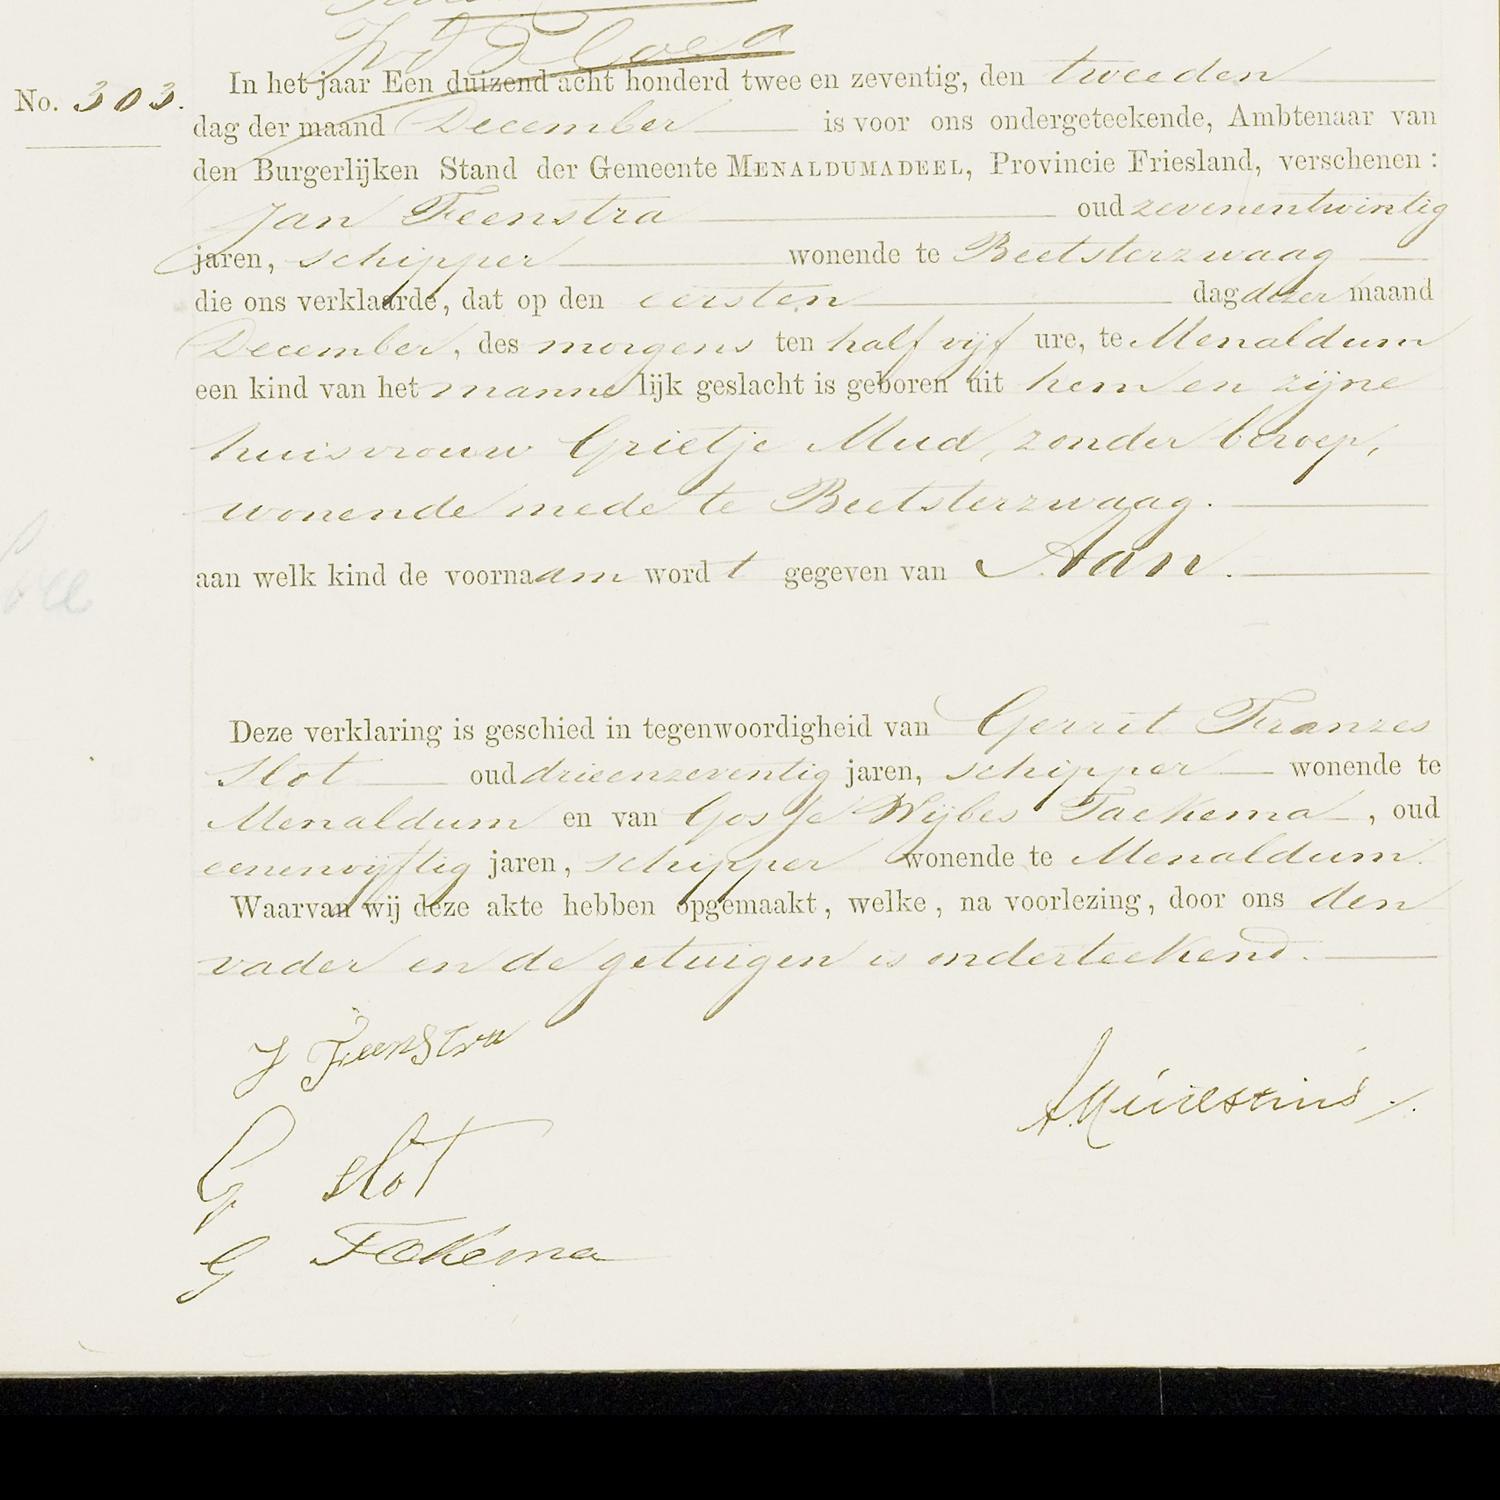 In het jaar Een duizend acht honderd twee en zeventig, den tweeden
No. 303.
dag der maand December is voor ons ondergeteekende, Ambtenaar van
den Burgerlijken Stand der Gemeente MENALDUMADEEL, Provincie Friesland, verschenen :
Jan Feenstra oud zevenentwintig
jaren, schipper wonende te Beetsterzwaag
die ons verklaarde, dat op den eersten dag dezer maand
December, des morgens ten half vijf ure, te Menaldum
een kind van het mannelijk geslacht is geboren uit hem en zijne
huisvrouw Grietje Mud, zonder beroep,
wonende mede te Beetsterzwaag.
aan welk kind de voornaam wordt gegeven van Aan.
Deze verklaring is geschied in tegenwoordigheid van Gerrit Franzes
Slot oud drieenzeventig jaren, schipper wonende te
Menaldum en van Gosse Wijbes Taekema, oud
eenenvijftig jaren, schipper wonende te Menaldum.
Waarvan wij deze akte hebben opgemaakt, welke, na voorlezing, door ons den
vader en de getuigen is onderteekend.
J Feenstra
G Slot
G Takema